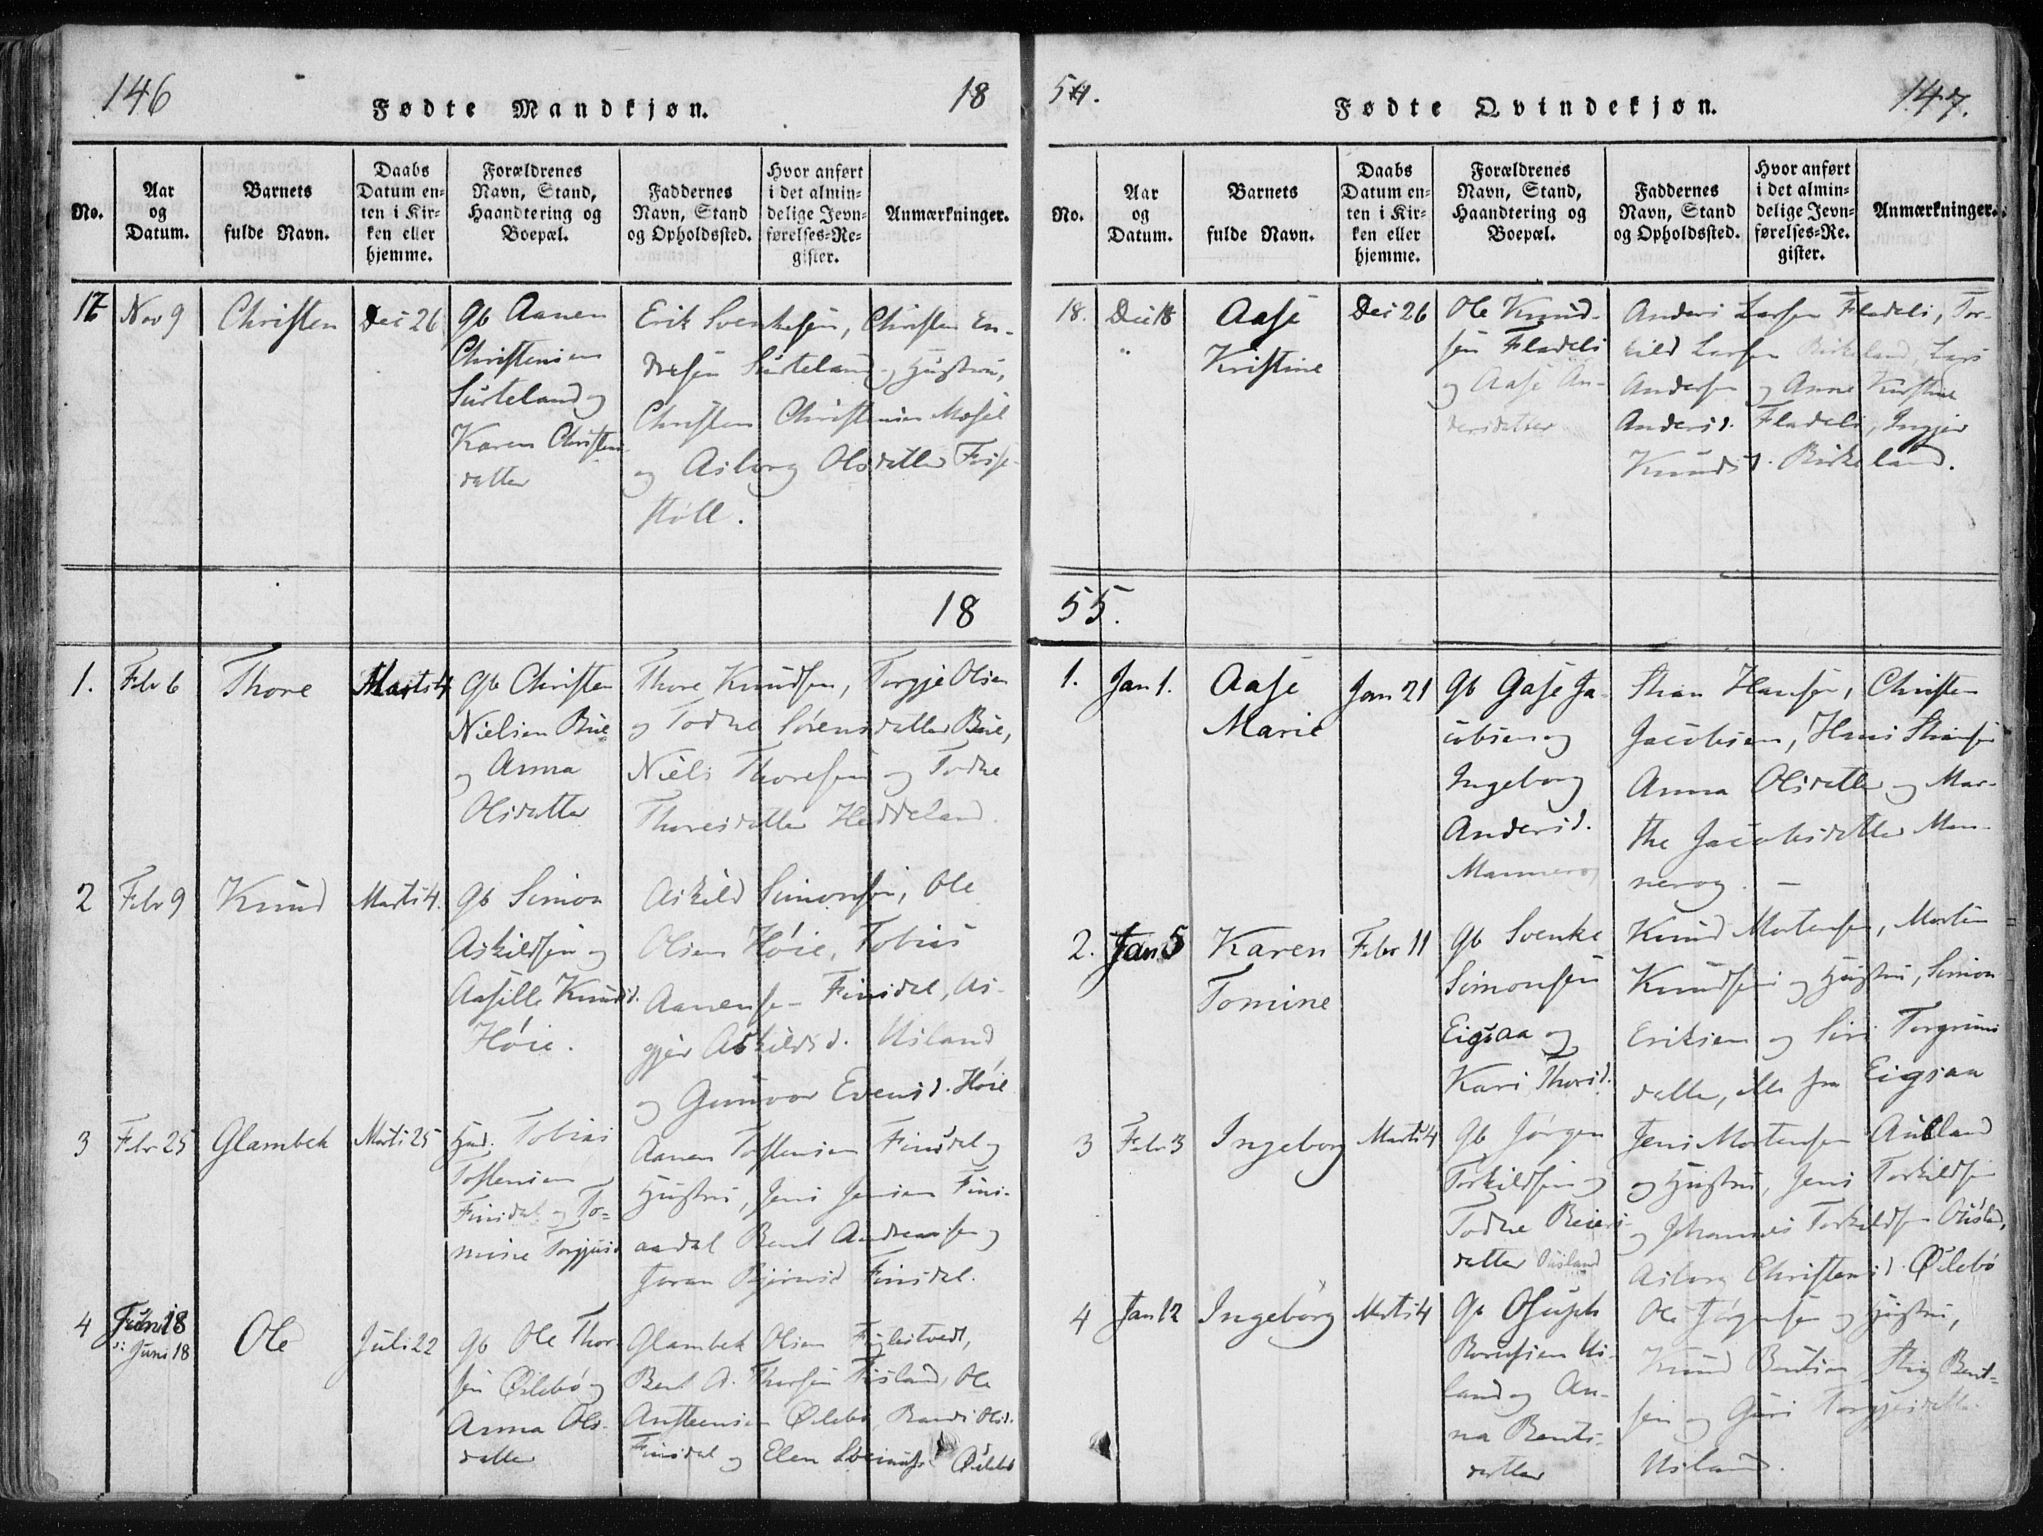 146
Fødte Mandkjøn.
18
No.
Aar
og
Datum.
Barnets
fulde Navn.
Daabs
Datum en-
ten i Kir-
ken eller
hjemme.
Forældrenes
Navn, Stand,
Haandtering og
Boepæl.
Faddernes
Navn, Stand
og Opholdssted.
Hvor anført
i det almin-
delige Jevn-
førelses-Re-
gister.
Anmærkninger.
17
Nov 9
Christen
Dec 26
Gb Aanen
Christensen
Surteland og
Karen Christens
datter
Erik Svenkesen, Christen En-
dresen Surteland og Hustru,
Christen Christensen Mæsel
og Asborg Olsdatter Frise-
støll.
18
1.
Febr 6
Thore
Marts 4
Gb Christen
Nielsen Bue
og Anna
Olsdatter
Thore Knudsen, Torgje Olsen
og Todne Sørensdatter Bue,
Niels Thoresen og Todne
Thoresdatter Heddeland.
2
Febr 9
Knud
Marts 4.
Gb Simon
Askildsen og
Aasille Knudsd.
Høie.
Askild Simonsen, Ole
Olsen Høie, Tobias
Aanensen Finsdal, As-
gjer Askildsd. Usland
og Gunvor Evensd. Høie
3
Febr 25
Glambek
Marts 25
Husd. Tobias
Toftensen
Finsdal og To-
mine Torgjusd
Aanen Toftensen Finsdal og
Hustru, Jens Jensen Fins-
aadal Bent Andreassen og
Joran Bjørnsd Finsdal.
4
Juni 18
s: Juni 18
Ole
Juli 22
Gb Ole Thor
sen Øilebø og
Anna Ols-
datter
Glambek Olsen Fuglestvedt,
Bent A. Thorsen Usland, Ole
Anstensen Øilebø, Randi Olsd.
Finsdal og Elen Øilebø
54.
Fødte Qvindekjøn.
147.
No.
Aar
og
Datum.
Barnets
fulde Navn.
Daabs
Datum en-
ten i Kir-
ken eller
hjemme.
Forældrenes
Navn, Stand,
Haandtering og
Boepæl.
Faddernes
Navn, Stand
og Opholdssted.
Hvor anført
i det almin-
delige Jevn-
førelses-Re-
gister.
Anmærkninger.
18.
Dec 18
Aase
Kristine
Dec 26
Ole Knud-
sen Fladeli
og Aase An-
dersdatter
Anders Larsen Fladeli, Tor-
kild Larsen Birkeland, Lars
Andersen og Anne Kirstine
Andersd. Fladeli, Ingjer
Knudsd. Birkeland.
55.
1.
Jan 1.
Aase
Marie
Jan 21
Gb Gase Ja-
cobsen og
Ingeborg
Andersd.
Mannerog
Stian Hansen, Christen
Jacobsen, Hans Stiansen
Anna Olsdatter og Mar-
the Jacobsdatter Man-
nerog. —
2.
Jan 5
Karen
Tomine
Febr 11
Gb Svenke
Simonsen
Eigsaa og
Kari Thorsd.
Knud Mortensen, Morten
Knudsen og Hustru, Simon
Eriksen og Siri Torgrims
datter, alle fra Eigsaa
3
Febr 3
Ingeborg
Marts 4
Gb Jørgen
Torkildsen og
Todne Reiers-
datter Usland
Jens Mortensen Aubland
og Hustru, Jens Torkildsen
og Johannes Torkildsen Usland,
Asborg Christensd. Øilebø
4
Jan 12
Ingeborg
Marts 4
Gb Osuph
Bentsen Us-
land og An-
na Bents-
datter
Ole Jørgensen og Hustru,
Knud Bentsen, Stig Bent-
sen og Guri Torgjersdatter
Usland.